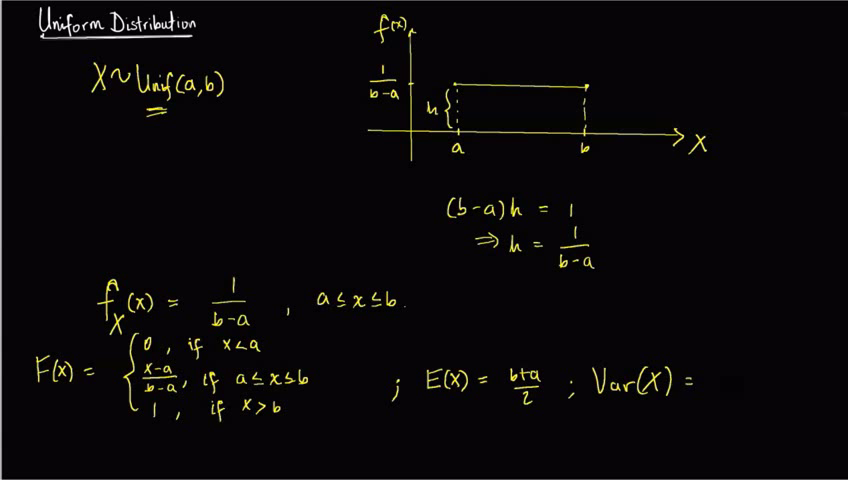 Uniform Distribution
X ~ Unif(a,b)
f(x)
1/(b-a)
h {
a b X
(b-a)h = 1
⇒ h = 1/(b-a)
f_X(x) = 1/(b-a) , a ≤ x ≤ b.
F(x) = { 0 , if x < a
(x-a)/(b-a) , if a ≤ x ≤ b
1 , if x > b
; E(X) = (b+a)/2 ; Var(X) =